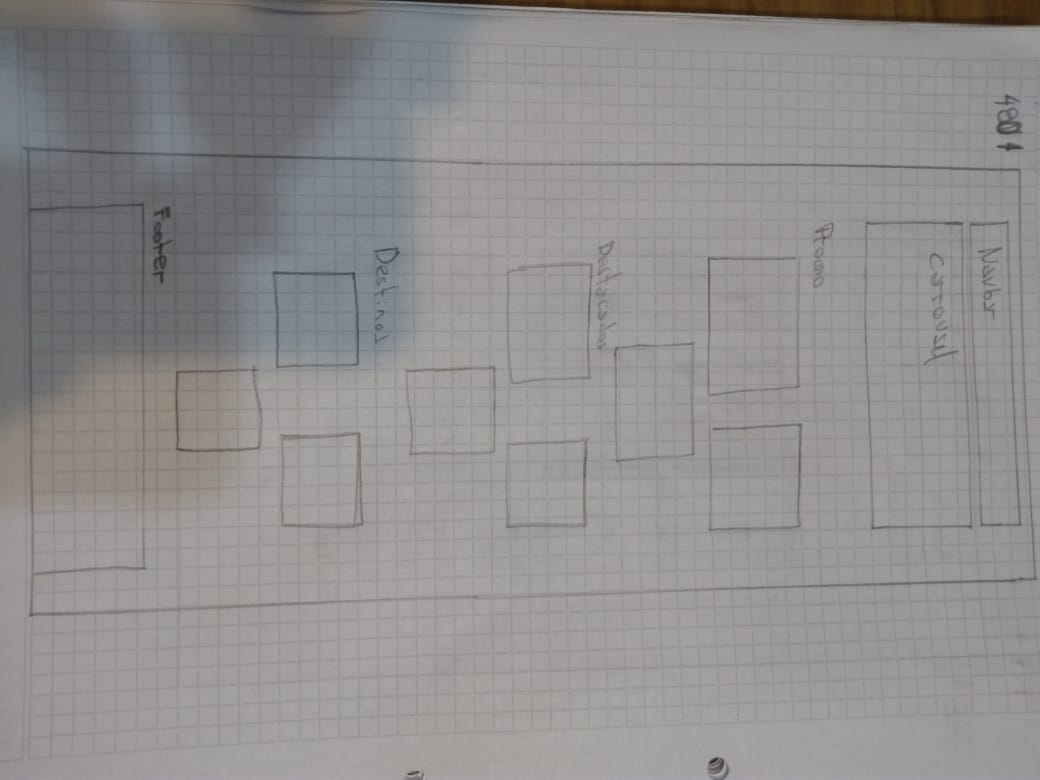 480 1
Navbar
Carousel
Destacados
Destinos
Footer